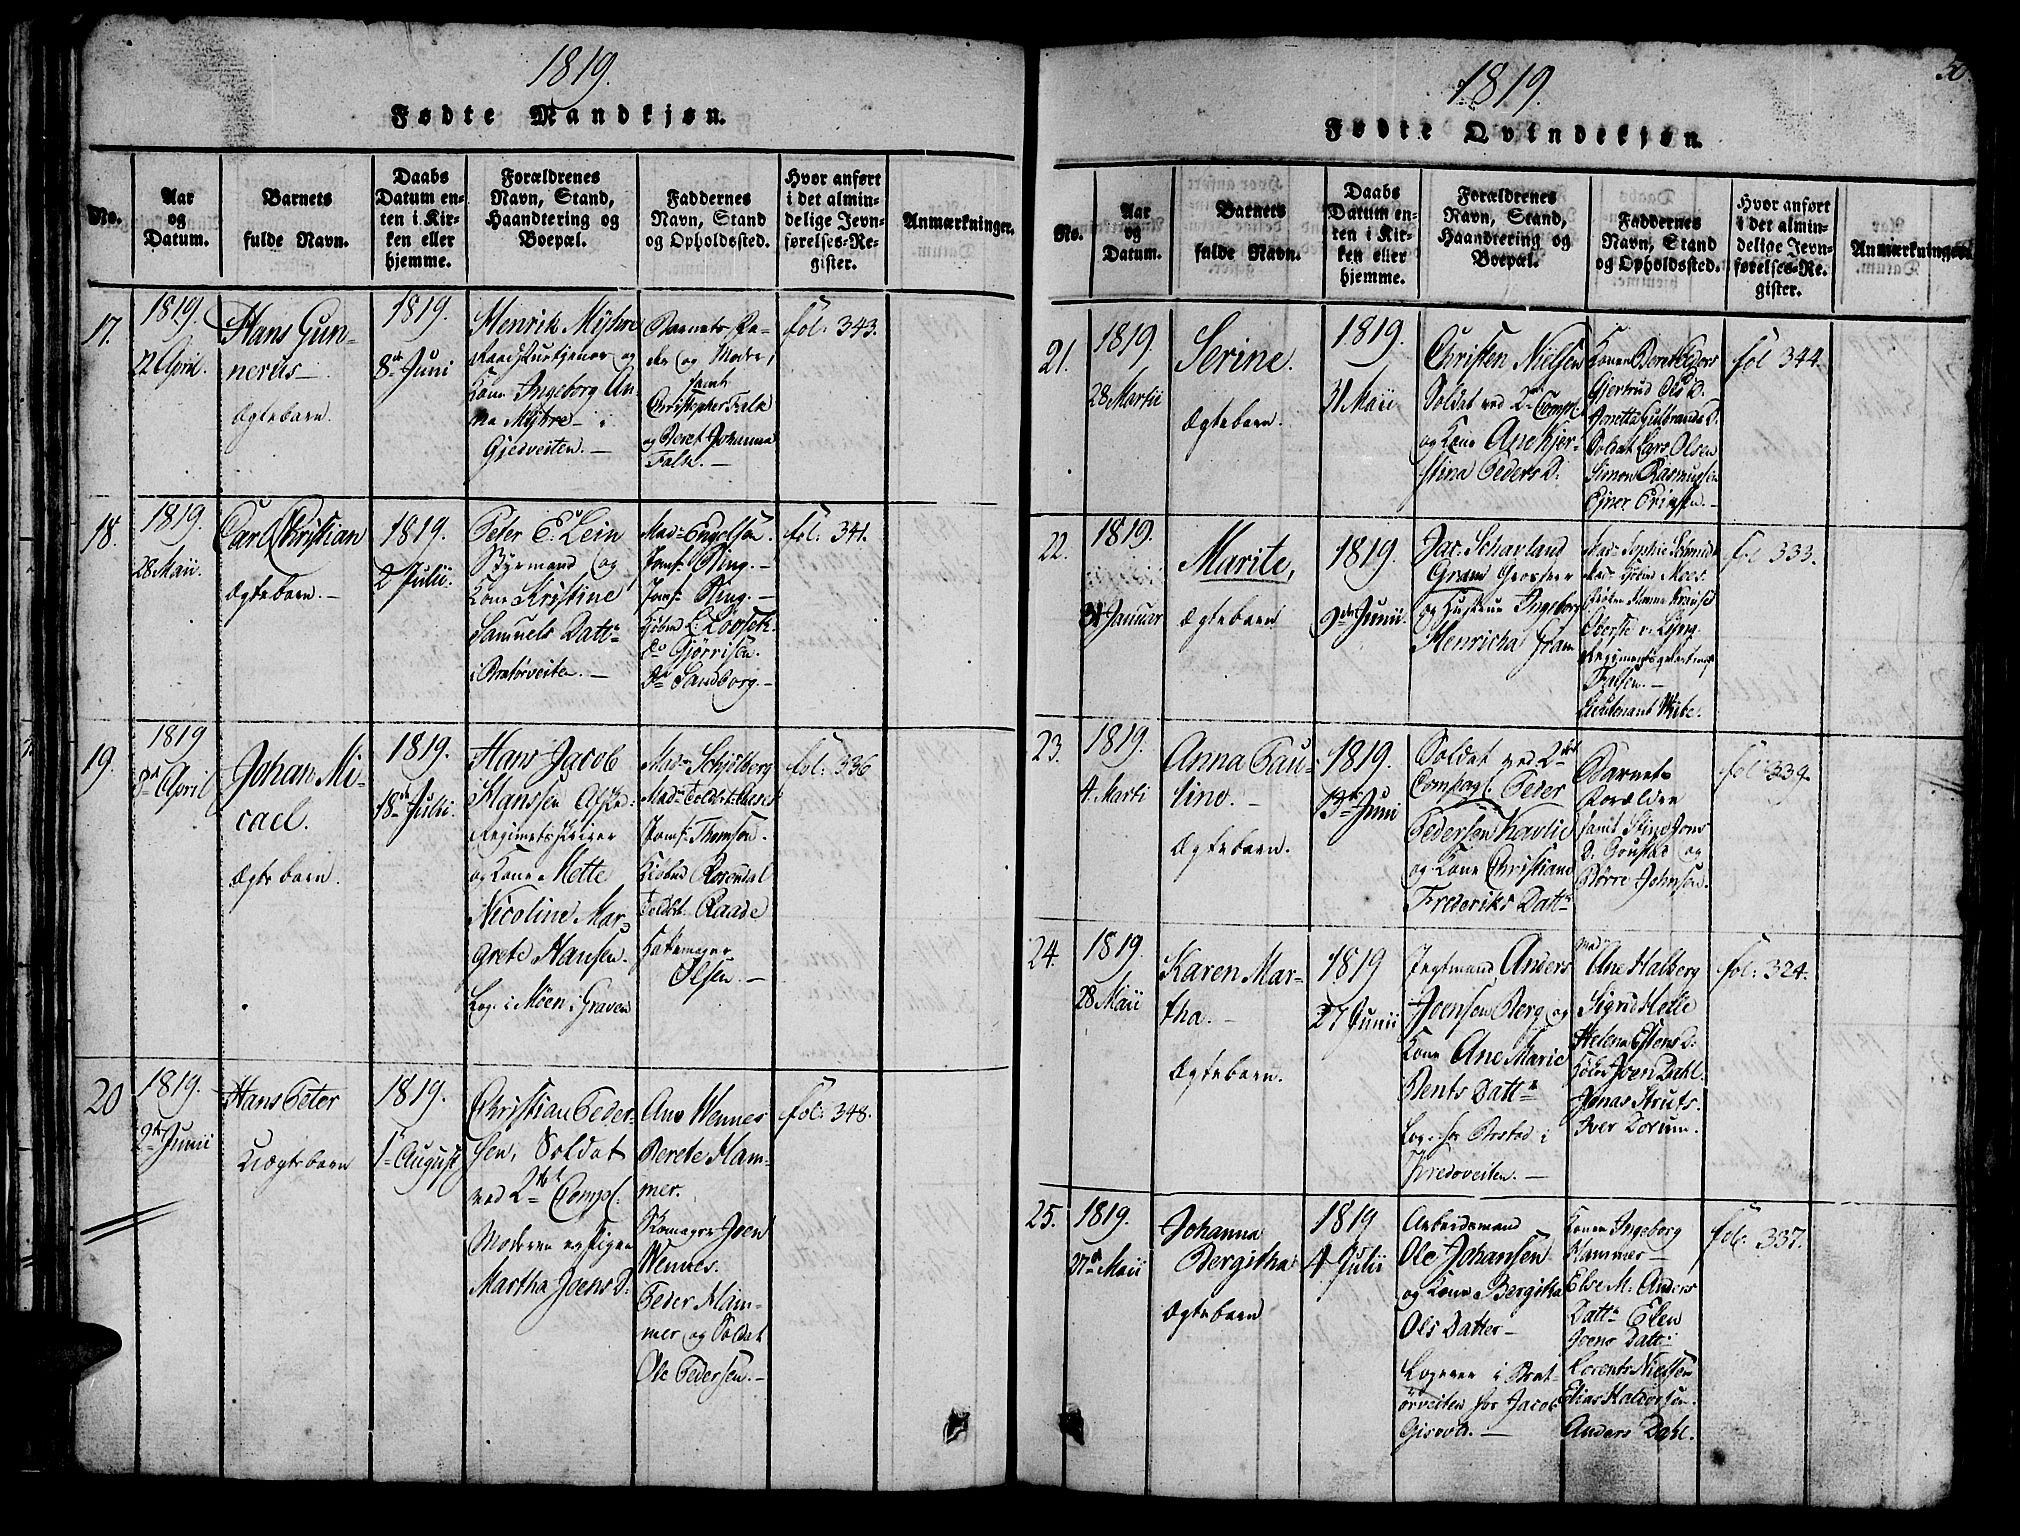 1819.
Fødte Mandkjøn.
No.
Aar
og
Datum.
Barnets
fulde Navn.
Daabs
Datum en-
ten i Kir-
ken eller
hjemme.
Forældrenes
Navn, Stand,
Haandtering og
Boepæl.
Faddernes
Navn, Stand
og Opholdssted.
Hvor anført
i det almin-
delige Jevn-
førelses-Re-
gister.
Anmærkninger.
17.
1819.
22 April.
Hans Gun-
nerus
Ægtebarn.
1819.
8de Juni
Henrik Myhre
Raadstuetjener og
Kone Ingeborg An-
na Myhre i
Gjedveiten.
Barnets Fa-
der og Moder,
samt
Christopher Falk
og Beret Johanna
Falk.
fol: 343.
18.
1819.
28 Maii.
Carl Christian
Ægtebarn.
1819.
2 Julii.
Peter E. Lein
Styrmand og
Kone Kristine
Samuels Datt.
i Bratørveiten.
Mad: Engelsen.
Jomf: Bing.
Jomf: Bing.
Kjøbm: Loosch.
do Gjørrisen.
do Sandborg.
fol: 341.
19.
1819
8de April
Johan Mi-
cael.
Ægtebarn.
1819.
18de Julii.
Hans Jacob
Hanssen Afsked:
Regimentsskriver
og Kone Mette
Nicoline Mar-
grete Hansen.
Log. i Møen i Graven
Mad: Schjelberg
Jomf: Thomsen.
Kiøbm Rosendal
Toldbt. Raade
Hattemager
Olsen.
fol: 336
20
1819.
2de Junii
Hans Peter
Uægtebarn
1819.
1te August
Christian Peder-
sen, Soldat
ved 2det Compl.
Moderen er Pigen
Martha Joens D.
Ane Wennes
Berete Ham-
mer.
Skomager Joen
Wennes.
Peder Ham-
mer og Soldat
Ole Pedersen.
fol: 348.
50
1819.
Fødte Qvindekjøn.
No.
Aar
og
Datum.
Barnets
fulde Navn.
Daabs
Datum en-
ten i Kir-
ken eller
hjemme.
Forældrenes
Navn, Stand,
Haandtering og
Boepæl.
Faddernes
Navn, Stand
og Opholdssted.
Hvor anført
i det almin-
delige Jevn-
førelses-Re-
gister.
Anmærkninger.
21.
1819.
28 Martii
Serine.
Ægtebarn.
1819.
31 Maii
Christen Nielsen
Soldat ved 2det Compl.
og Kone Ane Kjer-
stina Peders D.
Gjertrud Ols D.
Anetta Gulbrands D.
Soldat Lars Olsen
Simon Rasmussen
fol 344.
22.
1819.
31 Januar
Marite,
Ægtebarn
1819.
2den Junii.
Jac: Scharland
Gram Grosserer
og Hustrue Ingeborg
Henricha Gram
Mad: Sophie Schmidt
Regimentsqvarterm:
Falsen.
Lieutenant Wibe.
fol 333.
23.
1819.
4 Marti
Anna Pau-
line.
Ægtebarn.
1819.
13de Juni
Soldat ved 2det
Compagl. Peder
Pedersen Kavlie
og Kone Christiane
Frederiks Datt.
Barnets
Forældre
samt Stine Jons
D. Gaustad og
Børre Johnsen.
fol: 339.
24.
1819.
28 Maii
Karen Mar-
tha.
Ægtebarn.
1819
27 Junii
Jegtmand Anders
Joensen Berg og
Kone Ane Marie
Bents Datt.
Log. hos Arstad i
Credoveiten.
Mad
Ane Halberg
Sigrid Helle
Helena Estens D.
Joen Dahl.
Jonas Struts.
Iver Lorum.
fol: 324.
25.
1819.
27de Maii
Johanna
Bergitha
Ægtebarn
1819
4 Julii
Arbeidsmand
Ole Johansen
og Kone Bergitha
Ols Datter
Logerer i Brat-
ørveiten hos Jacob
Konen Ingeborg
Hammer
Else M. Anders
Datt. Elen
Joens Datt:
Lorents Nielsen
Elias Halvorsen.
Anders Dahl.
fol: 337.